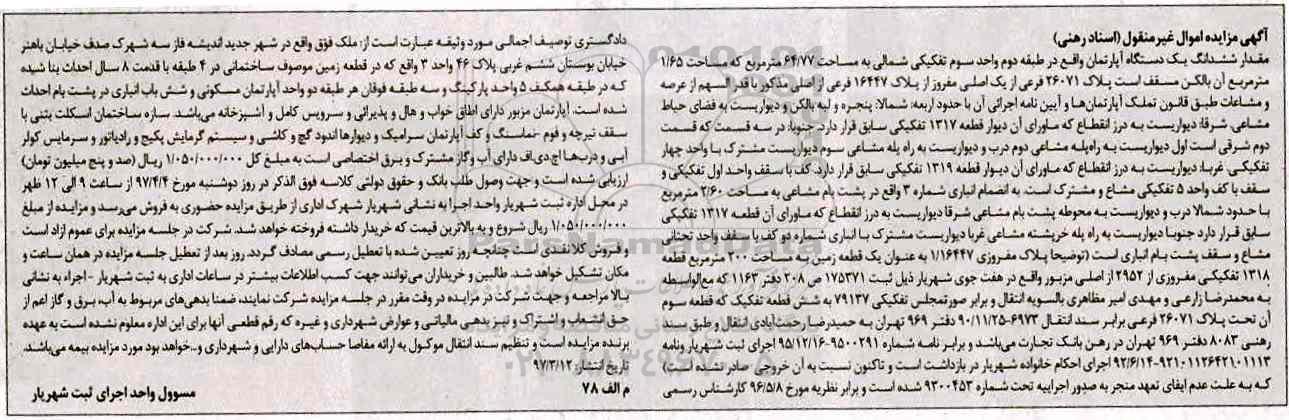 آگهی مزایده اموال غیرمنقول (اسناد رهنی)
مقدار ششدانگ یک دستگاه آپارتمان واقع در طبقه دوم واحد سوم تفکیکی شمالی به مساحت ۶۴/۷۷ مترمربع که مساحت ۱/۶۵
مترمربع آن بالکن مسقف است پلاک ۲۶۰۷۱ فرعی از یک اصلی مفروز از پلاک ۱۶۴۴۷ فرعی از اصلی مذکور با قدرالسهم از عرصه
و مشاعات طبق قانون تملک آپارتمان‌ها و آیین نامه اجرائی آن با حدود اربعه: شمالا: پنجره و لبه بالکن و دیواریست به فضای حیاط
مشاعی. شرقا: دیواریست به درز انقطاع که ماورای آن دیوار قطعه ۱۳۱۷ تفکیکی سابق قرار دارد. جنوبا: در سه قسمت که قسمت
دوم شرقی است اول دیواریست به راه‌پله مشاعی دوم درب و دیواریست به راه پله مشاعی سوم دیواریست مشترک با واحد چهار
تفکیکی. غربا: دیواریست به درز انقطاع که ماورای آن دیوار قطعه ۱۳۱۹ تفکیکی سابق قرار دارد. کف با سقف واحد اول تفکیکی و
سقف با کف واحد ۵ تفکیکی مشاع و مشترک است. به انضمام انباری شماره ۳ واقع در پشت بام مشاعی به مساحت ۲/۶۰ مترمربع
با حدود شمالا درب و دیواریست به محوطه پشت بام مشاعی شرقا دیواریست به درز انقطاع که ماورای آن قطعه ۱۳۱۷ تفکیکی
سابق قرار دارد جنوبا دیواریست به راه پله خرپشته مشاعی غربا دیواریست مشترک با انباری شماره دو کف با سقف واحد تحتانی
مشاع و سقف پشت بام انباری است (توضیحا پلاک مفروزی ۱/۱۶۴۴۷ به عنوان یک قطعه زمین به مساحت ۲۰۰ مترمربع قطعه
۱۳۱۸ تفکیکی مفروزی از ۲۹۵۲ از اصلی مزبور واقع در هفت جوی شهریار ذیل ثبت ۱۷۵۳۷۱ ص ۲۰۸ دفتر ۱۱۶۳ که مع‌الواسطه
به محمدرضا زارعی و مهدی امیر مظاهری بالسویه انتقال و برابر صورتمجلس تفکیکی ۷۹۱۳۷ به شش قطعه تفکیک که قطعه سوم
آن تحت پلاک ۲۶۰۷۱ فرعی برابر سند انتقال ۶۹۷۳-۹۰/۱۱/۲۵ دفتر ۹۶۹ تهران به حمیدرضا رحمت‌آبادی انتقال و طبق سند
رهنی ۸۰۸۳ دفتر ۹۶۹ تهران در رهن بانک تجارت می‌باشد و برابر نامه شماره ۹۵۰۰۲۹۱-۹۵/۱۲/۱۶ اجرای ثبت شهریار ونامه
۹۲/۶/۱۴-۹۲۱۰۱۱۳۶۴۲۱۰۱۱۱۳ اجرای احکام خانواده شهریار در بازداشت است و تاکنون نسبت به آن خروجی صادر نشده است)
که به علت عدم ایفای تعهد منجر به صدور اجراییه تحت شماره ۹۳۰۰۴۵۳ شده است و برابر نظریه مورخ ۹۶/۵/۸ کارشناس رسمی
دادگستری توصیف اجمالی مورد وثیقه عبارت است از: ملک فوق واقع در شهر جدید اندیشه فاز سه شهرک صدف خیابان باهنر
خیابان بوستان ششم غربی پلاک ۴۶ واحد ۳ واقع که در قطعه زمین موصوف ساختمانی در ۴ طبقه با قدمت ۸ سال احداث بنا شیده
که در طبقه همکف ۵ واحد پارکینگ و سه طبقه فوقان هر طبقه دو واحد آپارتمان مسکونی و شش باب انباری در پشت بام احداث
شده است. آپارتمان مزبور دارای اطاق خواب و هال و پذیرائی و سرویس کامل و آشپزخانه می‌باشد. سازه ساختمان اسکلت بتنی با
سقف تیرچه و فوم -نماسنگ و کف آپارتمان سرامیک و دیوارها اندود گچ و کاشی و سیستم گرمایش پکیج و رادیاتور و سرمایس کولر
آبی و درب‌ها اچ‌دی‌اف دارای آب و گاز مشترک و برق اختصاصی است به مبلغ کل ۱/۰۵۰/۰۰۰/۰۰۰ ریال (صد و پنج میلیون تومان)
ارزیابی شده است و جهت وصول طلب بانک و حقوق دولتی کلاسه فوق الذکر در روز دوشنبه مورخ ۹۷/۴/۴ از ساعت ۹ الی ۱۲ ظهر
در محل اداره ثبت شهریار واحد اجرا به نشانی شهریار شهرک اداری از طریق مزایده حضوری به فروش می‌رسد و مزایده از مبلغ
۱/۰۵۰/۰۰۰/۰۰۰ ریال شروع و به بالاترین قیمت که خریدار داشته فروخته خواهد شد. شرکت در جلسه مزایده برای عموم ازاد است
و فروش کلا نقدی است چنانچه روز تعیین شده با تعطیل رسمی مصادف گردد. روز بعد از تعطیل جلسه مزایده در همان ساعت و
مکان تشکیل خواهد شد. طالبین و خریداران می‌توانند جهت کسب اطلاعات بیشتر در ساعات اداری به ثبت شهریار - اجراء به نشانی
بالا مراجعه و جهت شرکت در مزایده در وقت مقرر در جلسه مزایده شرکت نمایند، ضمنا بدهی‌های مربوط به آب، برق و گاز اعم از
حق انشعاب و اشتراک و نیز بدهی مالیاتی و عوارض شهرداری و غیره که رقم قطعی آنها برای این اداره معلوم نشده است به عهده
برنده مزایده است و تنظیم سند انتقال موکول به ارائه مفاصا حساب‌های دارایی و شهرداری و...خواهد بود مورد مزایده بیمه می‌باشد.
تاریخ انتشار: ۹۷/۳/۱۲
م الف ۷۸
مسوول واحد اجرای ثبت شهریار